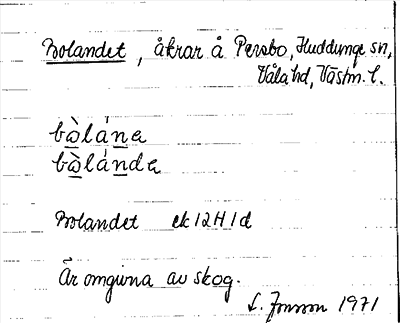 Bolandet, åkrar å Persbo, Huddunge sn,
Våla hd, Västm. l.
bò̲lán̲a
bò̲lán̲da
Bolandet ek 12H1d
Är omgivna av skog.
L. Jonsson 1971